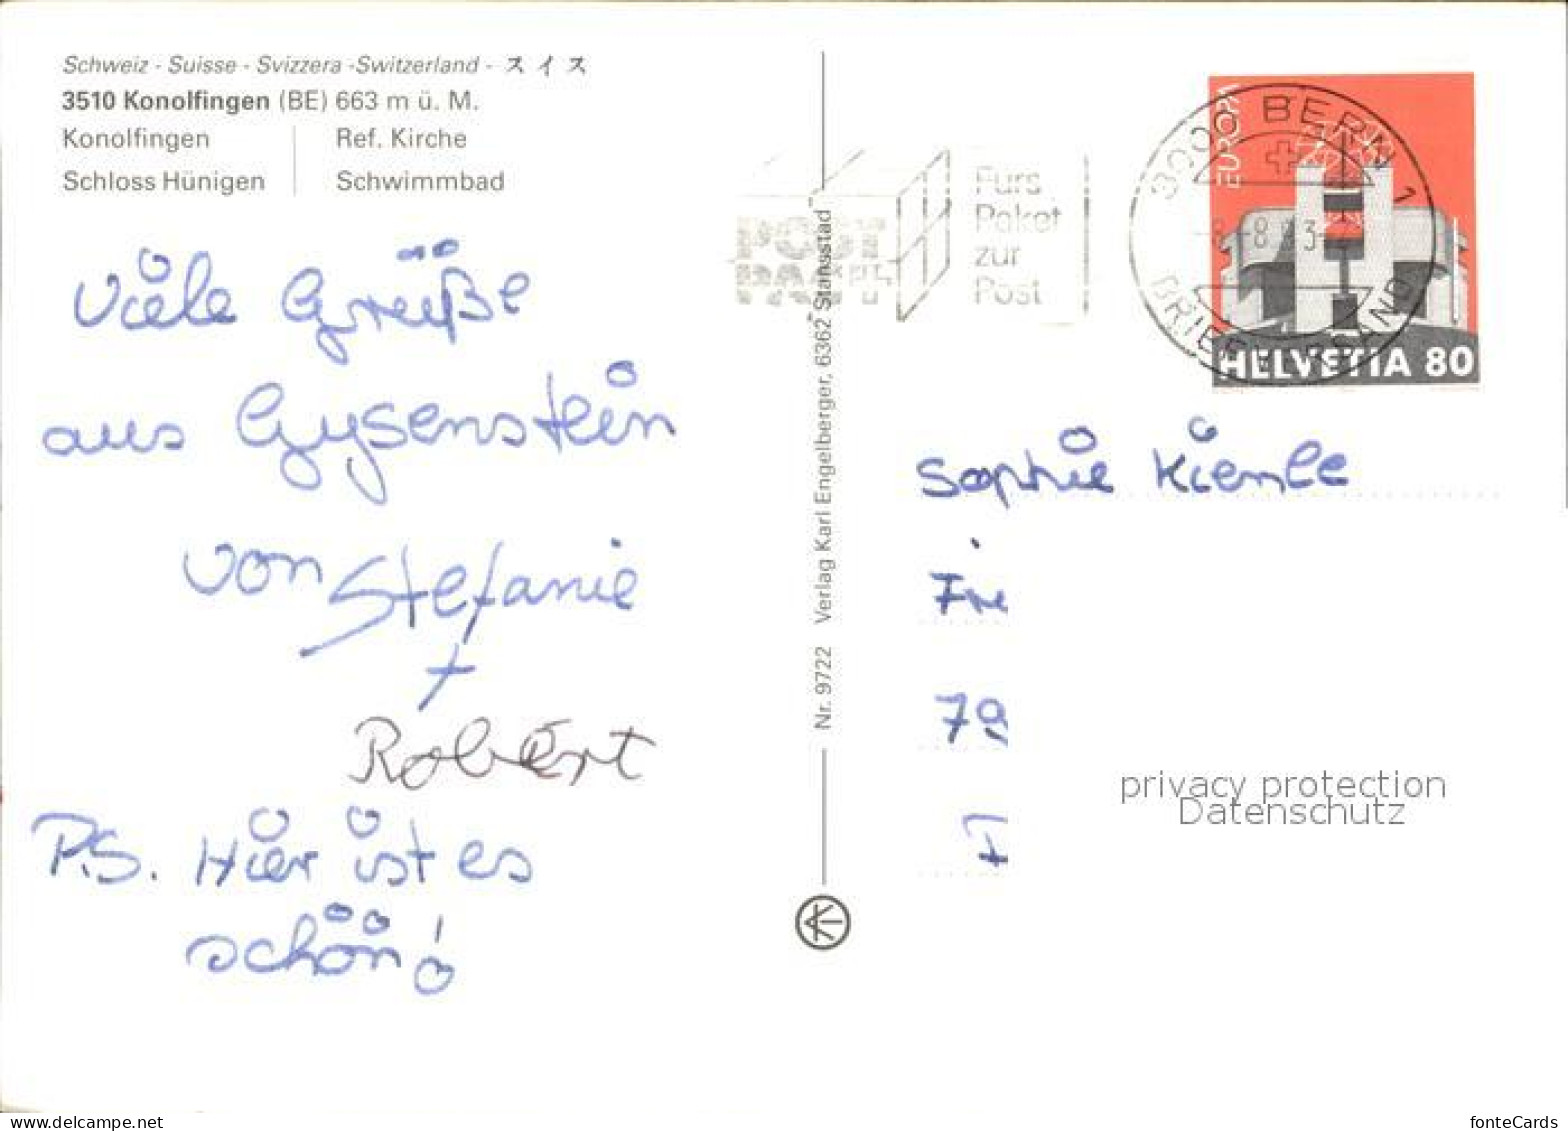 Schweiz - Suisse - Svizzera -Switzerland - スイス
3510 Konolfingen (BE) 663 m ü. M.
Konolfingen
Ref. Kirche
Schloss Hünigen
Schwimmbad
Viele Grüße
aus Gysenstein
von Stefanie
+
Robert
P.S. Hier ist es
schön!
Nr. 9722 Verlag Karl Engelberger, 6362 Stansstad
Fürs
Paket
zur
Post
3000 BERN 1
EUROPA
HELVETIA 80
Sophie Kienle
Fre
79
F
privacy protection
Datenschutz
www.delcampe.net
fonteCards